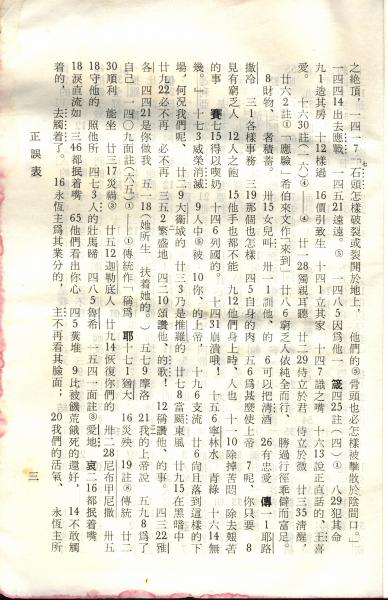 之絕頂, 一四一7「石頭怎樣破裂或裂開於地上, 他們的⑤骨頭也必怎樣被擊散於陰間口。」
一四四14出去應戰, 一四五21遠遠。⑤ 一四八5因爲他一 箴四25註(四)① 八29犯其命
九1造其房 十12樣過 十16價引致生 十四1立其家 十四7識之嘴 十六13說正直話的、王喜
愛。 十六30註(六)④——④ 廿一28獨視耳聽 廿二29侍立於君 侍立於微 廿三35清醒,
廿六2註①「應驗」希伯來文作「來到」 廿八6窮乏人依純全而行、 勝過行徑乖僻而富足。
8財物、 者積蓄。 卅15女兒叫 卅一1訓他、的 6可以把清酒 26有忠愛 傳一1耶路
撒冷 三1各樣事務 三19那個也怎樣 四5自身的肉 五6爲甚麼使上帝 7呢,你只要 8
見有窮乏人 12人之飽 15他手也都不能 九12他們身上時、人也 十一10除掉苦悶、除去艱苦
的事 賽七15得以喫奶 十四6列國的。 十四31崩潰哦! 十五6寧林水 青綠 十六14無
幾。」 十七3威榮消滅 9人中⑤被 10你、的上帝 十九6支流 廿四6向且落到這樣的下
場,何況我們呢、 廿二9大衞城的 廿三3乃是推羅的 廿七8當颳東風 廿九15在黑暗中
廿九22必不再 必不再 三五2繁盛地 四二10頌讚他、的歌! 12稱讚他、的事 四三22雅
各 四四21是你做我 五一18(她所生。 扶着她的。) 五七9摩洛 21我的上帝說 五九8爲了
自己 一四〇九面註(六五)①——①傳統作「稱爲 耶十七1猶大 卅16災殃、 19註⑧傳統 廿二
30順利, 能坐 廿三17災禍③ 廿五12迦勒底人 廿九14恢復你們的 卅二28尼布甲尼撒 卅五
18守他的 照他所 四七3人的壯馬蹄 四八5魯希 一五四一面註③愛地 哀二16都抿着嘴
18淚直流如 三46都抿着嘴 65他們看出你心 四5糞堆 9比被饑荒餓死的還好, 14不敢觸
着的, 去觸着了。 16永恆主爲其業分的, 主不再看其臉面; 20我們的活氣、 永恆主所
正誤表
三